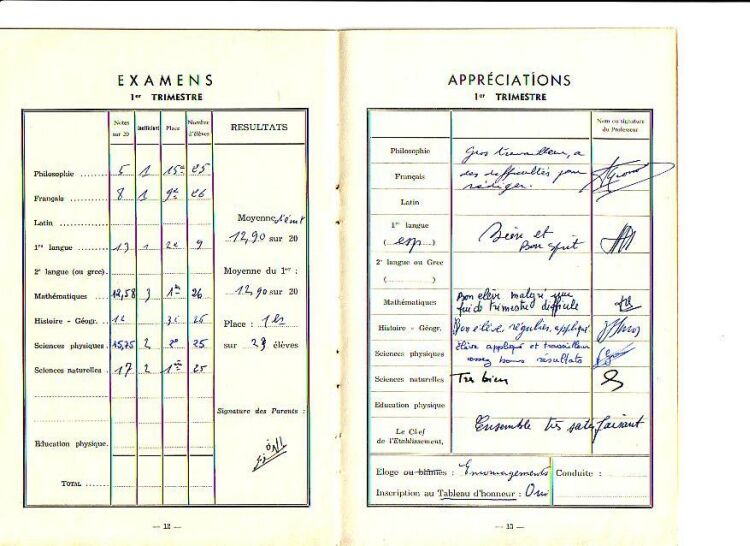 EXAMENS
1er TRIMESTRE
Notes sur 20 Coefficient Place Nombre d'élèves RESULTATS
Philosophie 5 1 15e 25
Français 8 1 9e 26
Latin
1re langue 13 1 2e 9
2e langue (ou grec)
Mathématiques 12,58 3 1er 26
Histoire - Géogr. 12 3e 26
Sciences physiques 15,75 2 2e 25
Sciences naturelles 17 2 1er 25
Education physique
TOTAL
Moyenne
12,90 sur 20
Moyenne du 1er :
12,90 sur 20
Place : 1er
sur 23 élèves
Signature des Parents :
— 12 —
APPRÉCIATIONS
1er TRIMESTRE
Nom ou signature du Professeur
Philosophie Gros travailleur, a
Français des difficultés pour
rédiger.
Latin
1re langue
(esp) Bien et
Bon esprit
2e langue ou Grec
( )
Mathématiques Bon élève malgré une
fin de trimestre difficile
Histoire - Géogr. Bon élève régulier, appliqué
Sciences physiques élève appliqué et travailleur
assez bons résultats
Sciences naturelles Très bien
Education physique
Le Chef de l'Etablissement, Ensemble très satisfaisant
Eloge ou blâmes : Encouragements Conduite :
Inscription au Tableau d'honneur : Oui
— 13 —